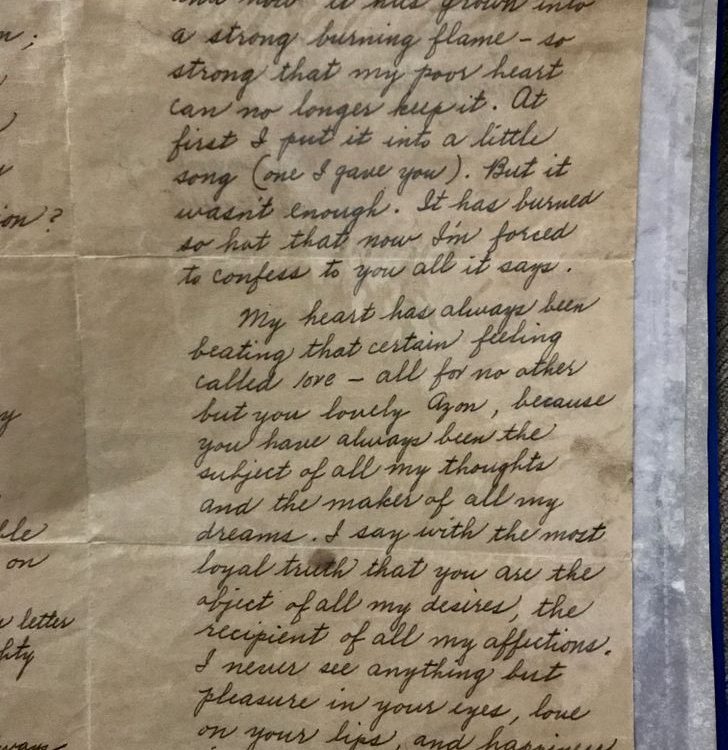 n;
ion?
y
ble
on
letter
hty
ways
and now it has grown into
a strong burning flame – so
strong that my poor heart
can no longer keep it. At
first I put it into a little
song (one I gave you). But it
wasn't enough. It has burned
so hot that now I'm forced
to confess to you all it says.
My heart has always been
beating that certain feeling
called love – all for no other
but you lovely Azon, because
you have always been the
subject of all my thoughts
and the maker of all my
dreams. I say with the most
loyal truth that you are the
object of all my desires, the
recipient of all my affections.
I never see anything but
pleasure in your eyes, love
on your lips, and happiness